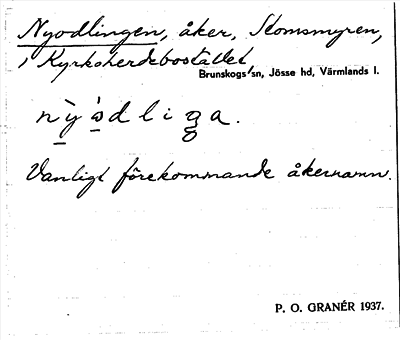 Nyodlingen, åker, Slomsmyren,
i Kyrkoherdebostället
Brunskogs sn, Jösse hd, Värmlands l.
Vanligt förekommande åkernamn.
P. O. GRANÉR 1937.